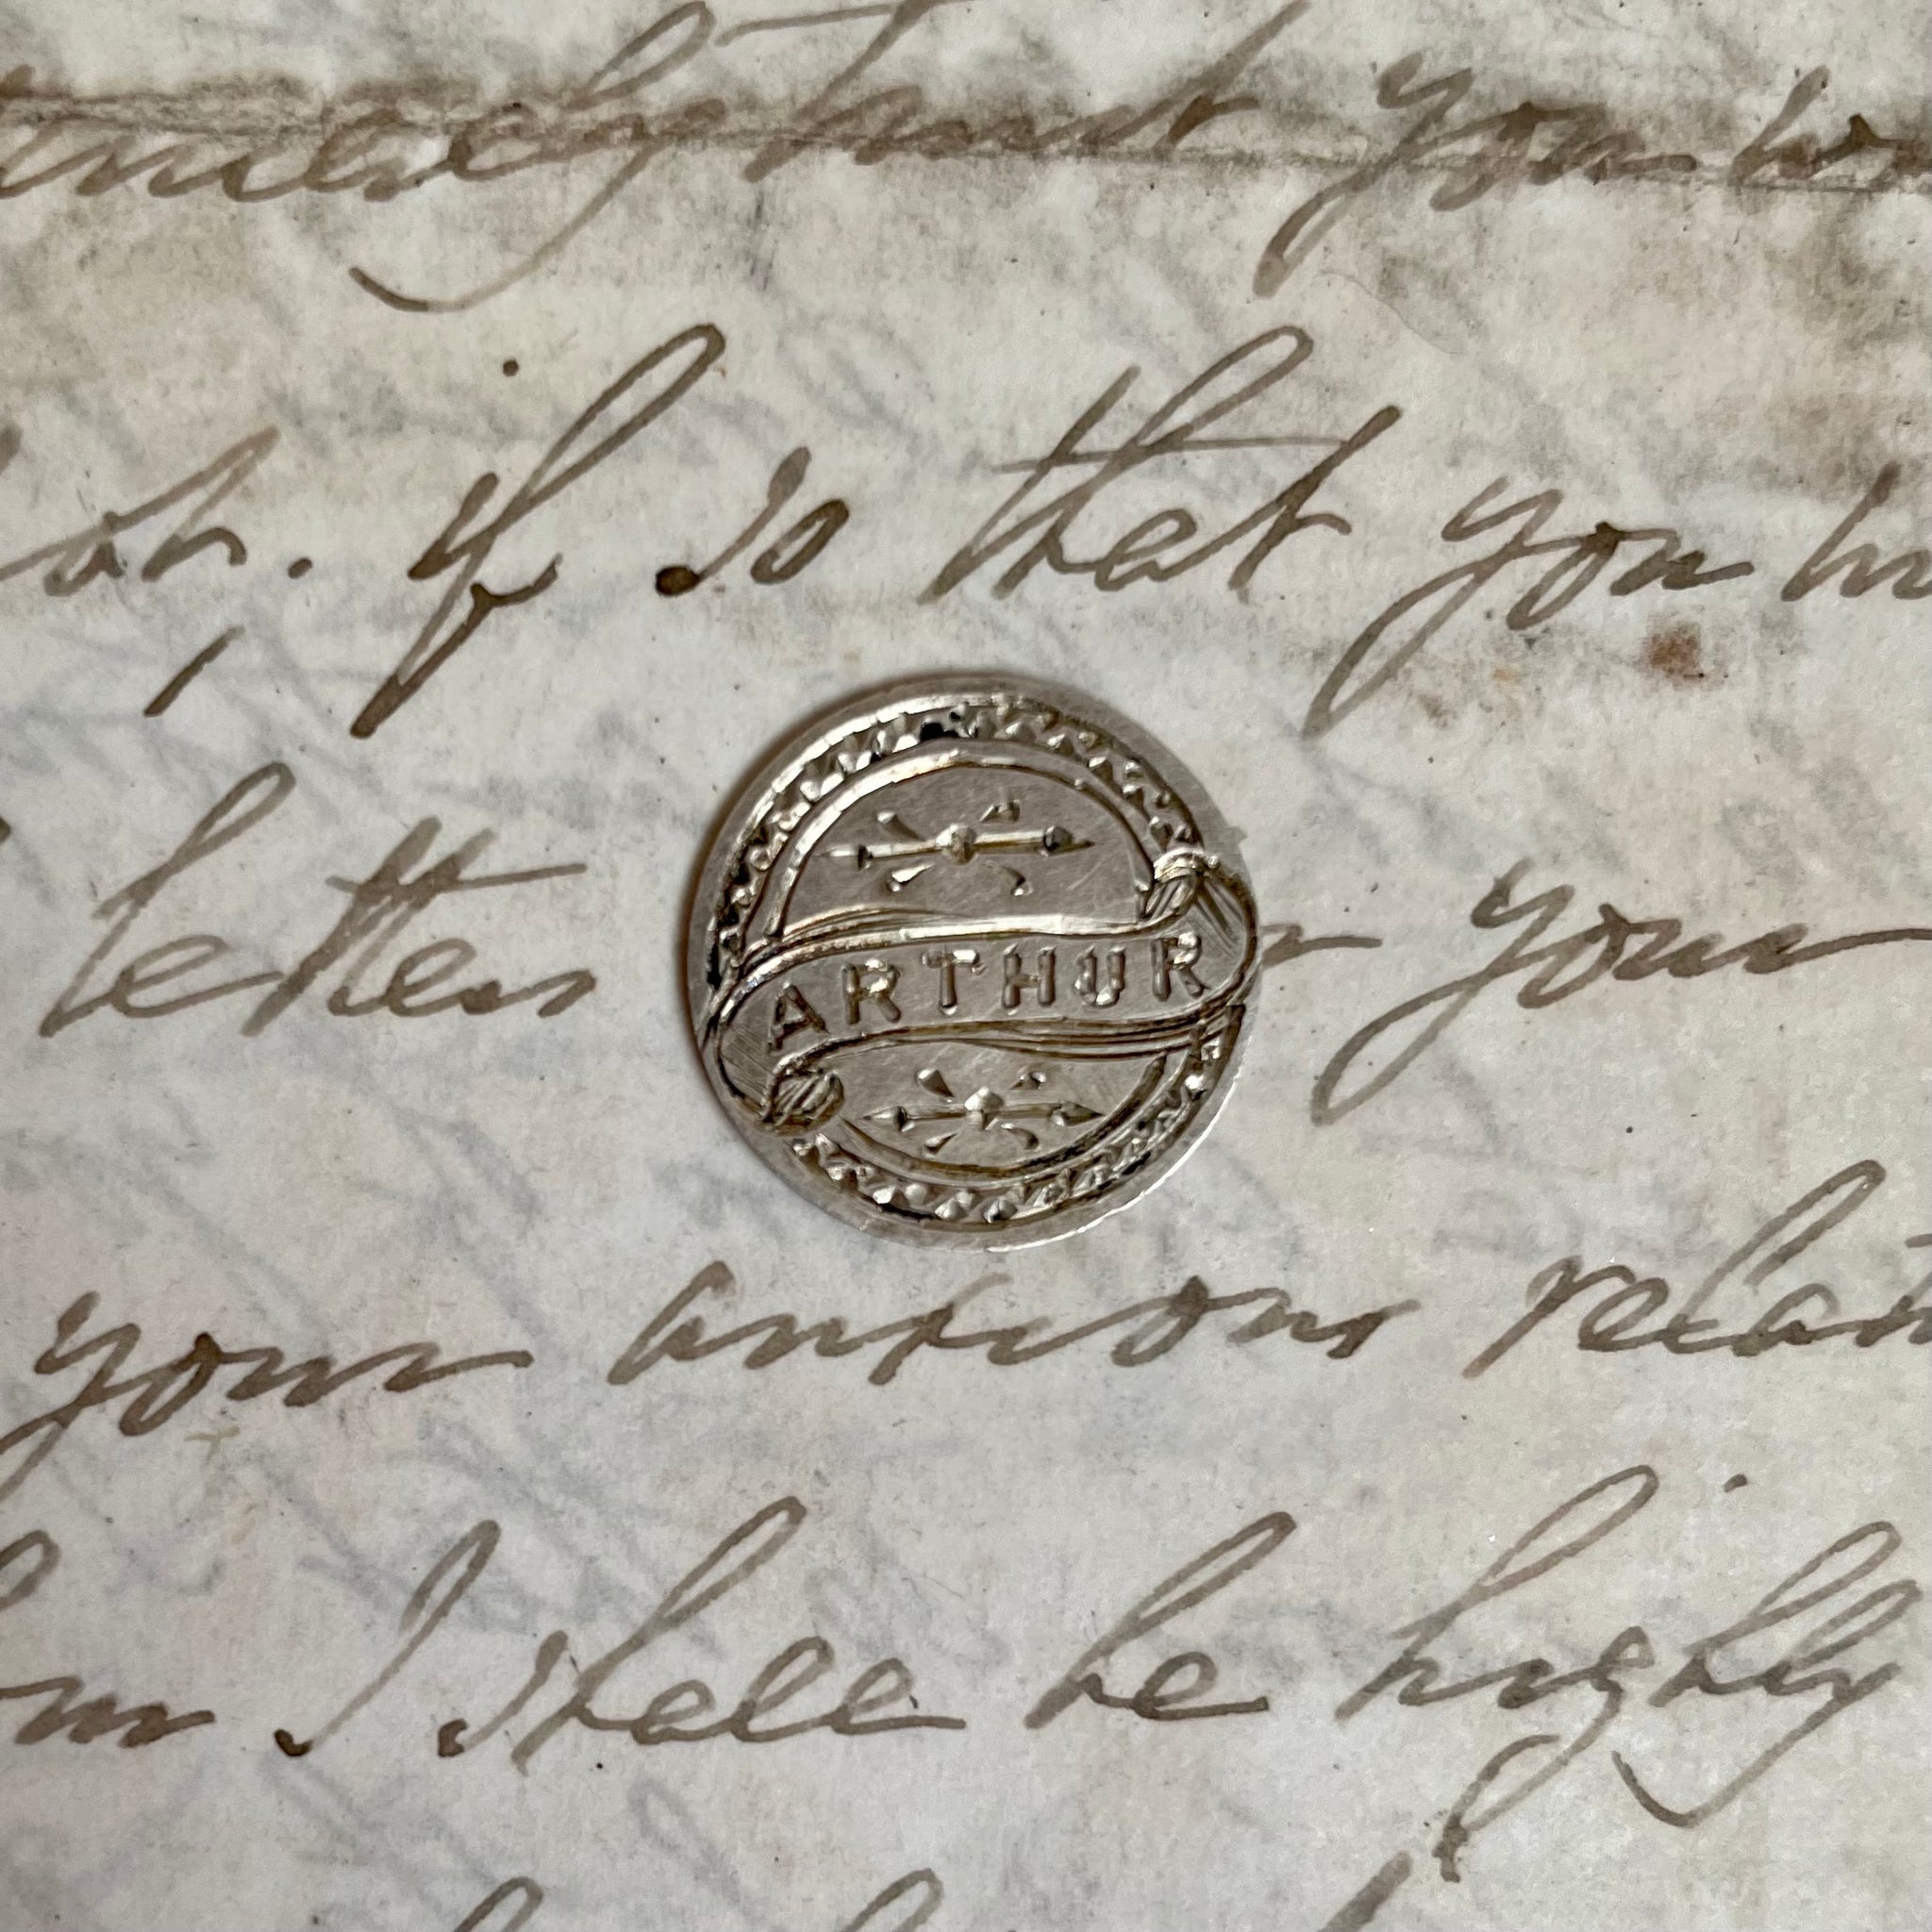 that you
if so that you
letters
ARTHUR
your
your anxious relat
I shall be highly